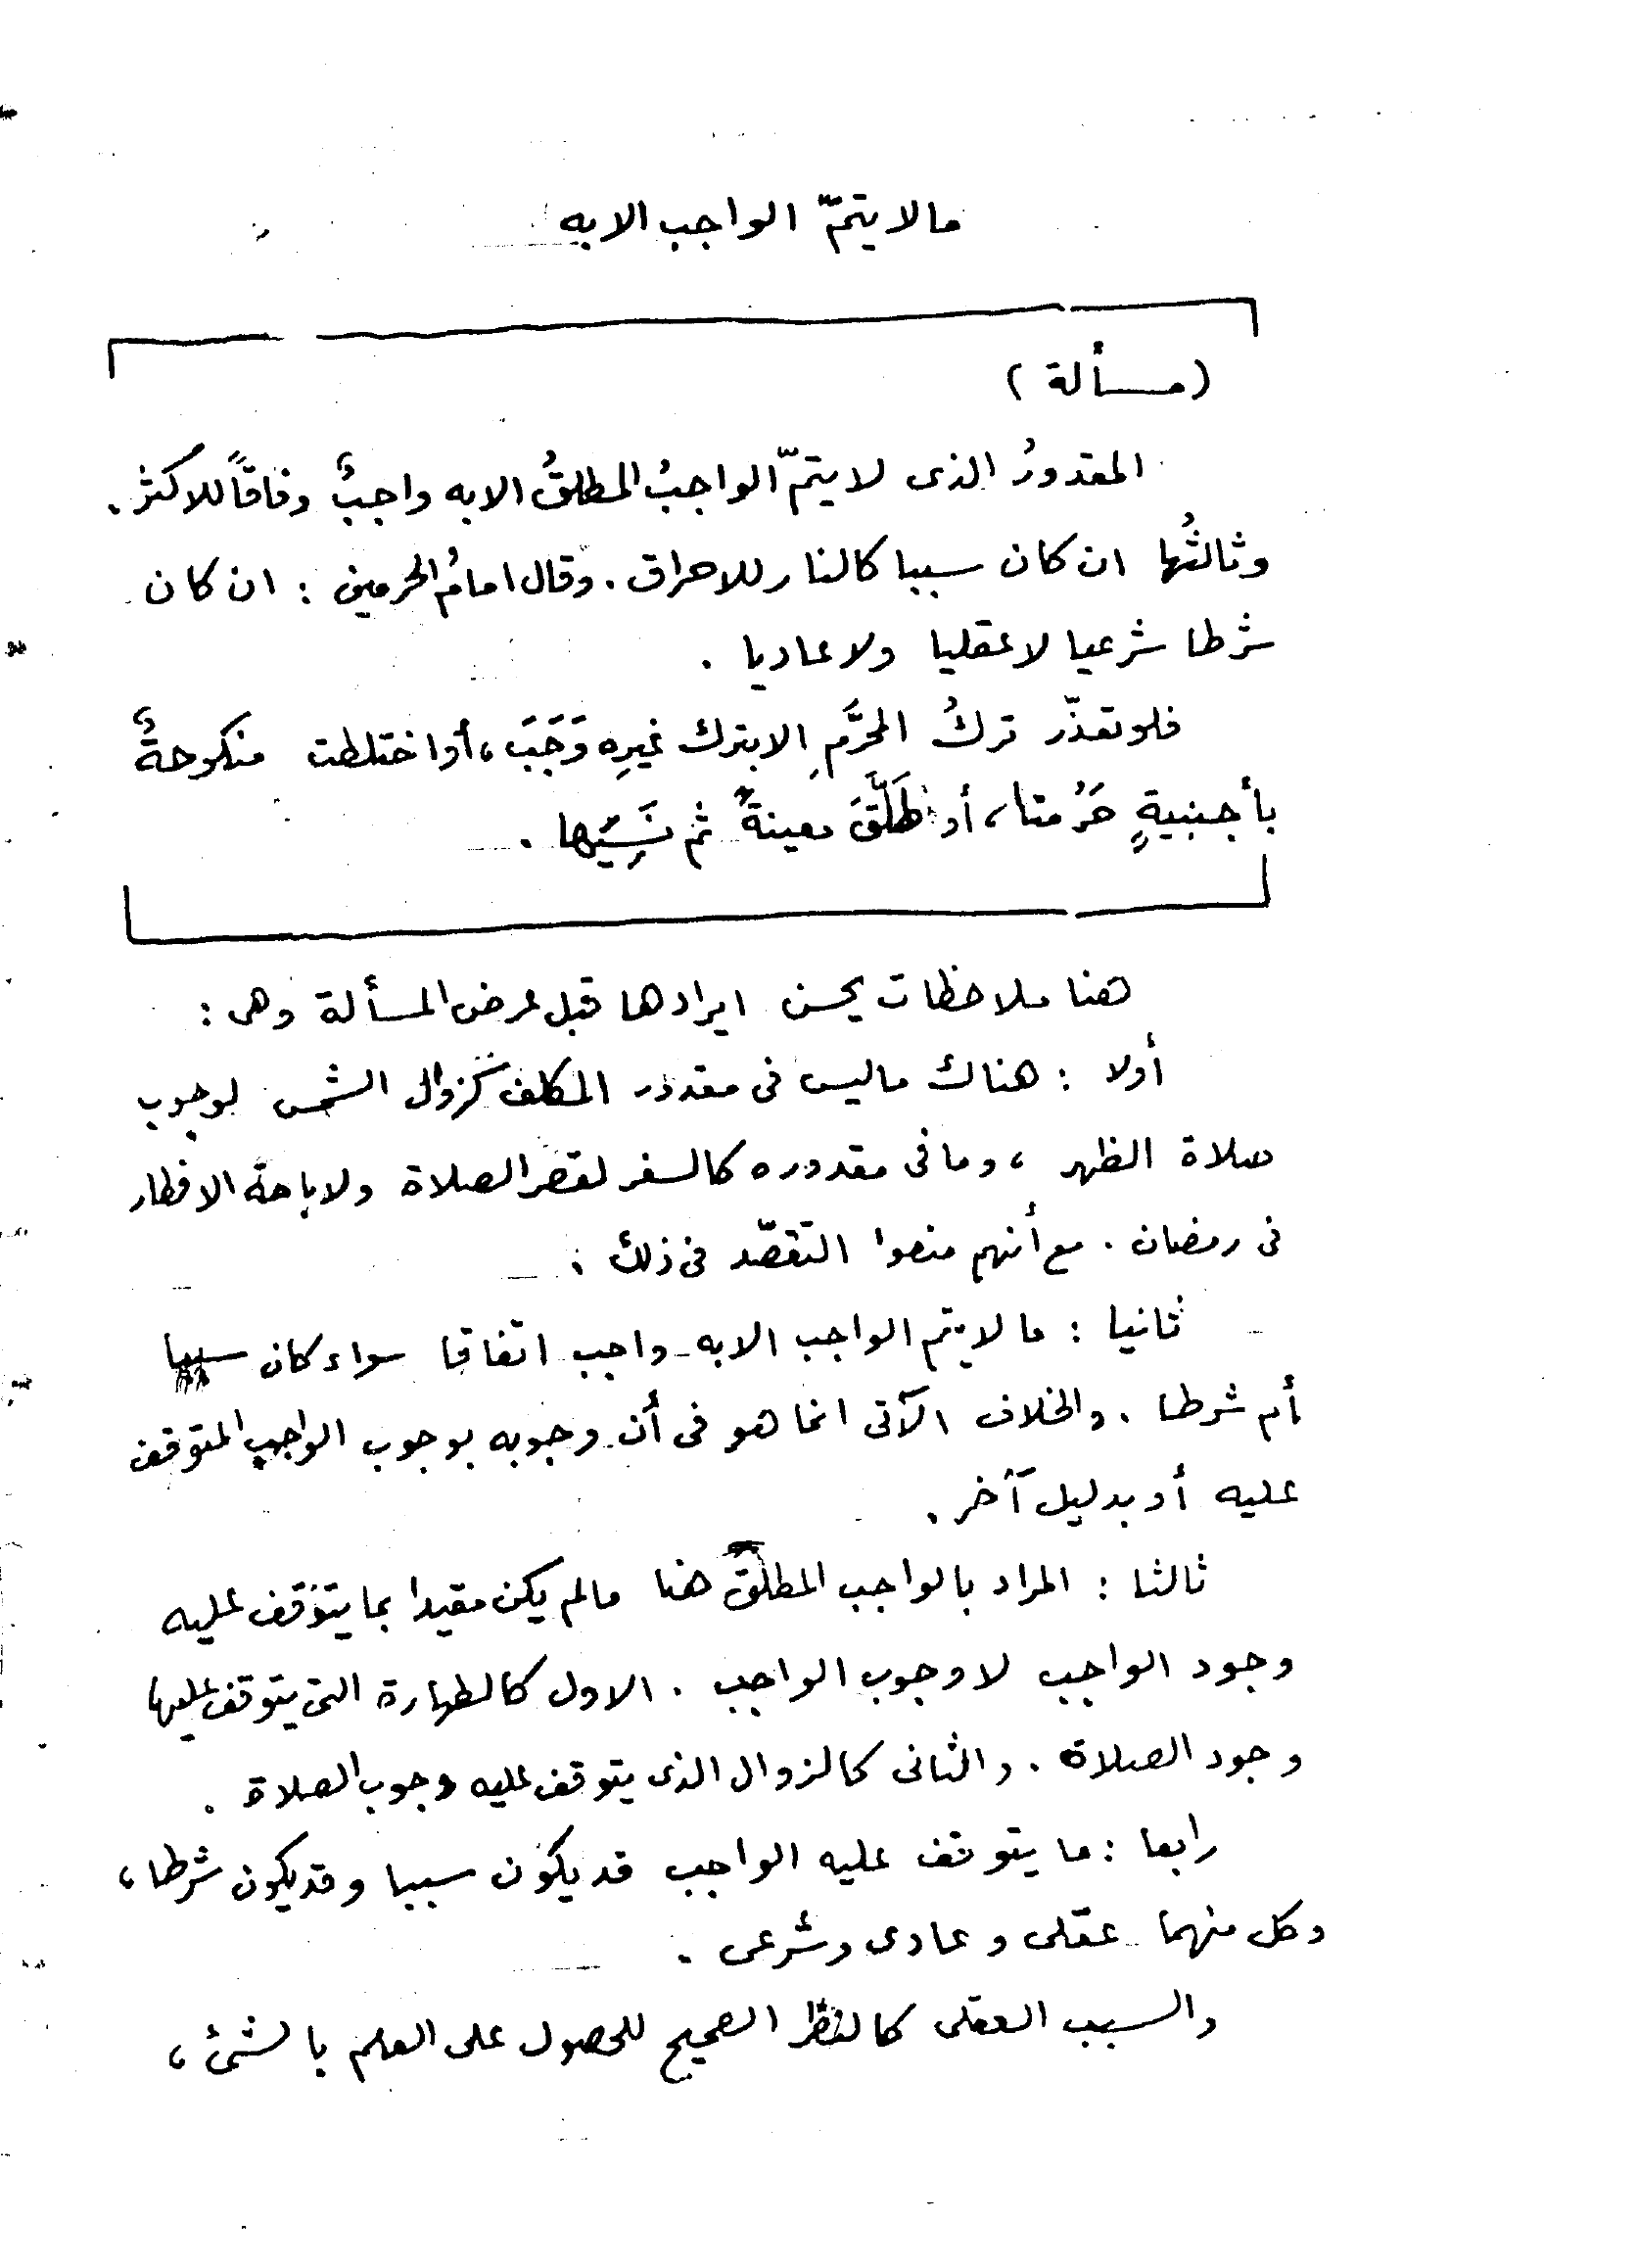 مالا يتمّ الواجب الا به
(مسألة)
المقدورُ الذى لا يتمّ الواجبُ المطلقُ الا به واجبٌ وفاقاً للاكثر .
وثالثُها ان كان سببا كالنار للاحراق . وقال امامُ الحرمين : ان كان
شرطا شرعيا لا عقليا ولا عاديا .
فلو تعذّر تركُ المحرَّمِ الا بترك غيرِه وَجَبَ ، أو اختلطت منكوحةٌ
بأجنبيةٍ حَرُمتا ، أو طَلَّقَ معينةً ثم نَسِيَها .
هنا ملاحظات يحسن ايرادها قبل عرض المسألة وهى :
أولا : هناك ماليس فى مقدور المكلف كزوال الشمس لوجوب
صلاة الظهر ، وما فى مقدوره كالسفر لقصر الصلاة ولاباحة الافطار
فى رمضان . مع أنهم منعوا التقصّد فى ذلك .
ثانيا : ما لا يتم الواجب الا به واجب اتفاقا سواء كان سببا
أم شرطا . والخلاف الآتى انما هو فى أن وجوبه بوجوب الواجب المتوقف
عليه أو بدليل آخر .
ثالثا : المراد بالواجب المطلق هنا مالم يكن مقيدا بما يتوقف عليه
وجود الواجب لا وجوب الواجب . الاول كالطهارة التى يتوقف عليها
وجود الصلاة . والثانى كالزوال الذى يتوقف عليه وجوب الصلاة .
رابعا : ما يتوقف عليه الواجب قد يكون سببا وقد يكون شرطا ،
وكل منهما عقلى وعادى وشرعى .
والسبب العقلى كالنظر الصحيح للحصول على العلم بالشئ ،